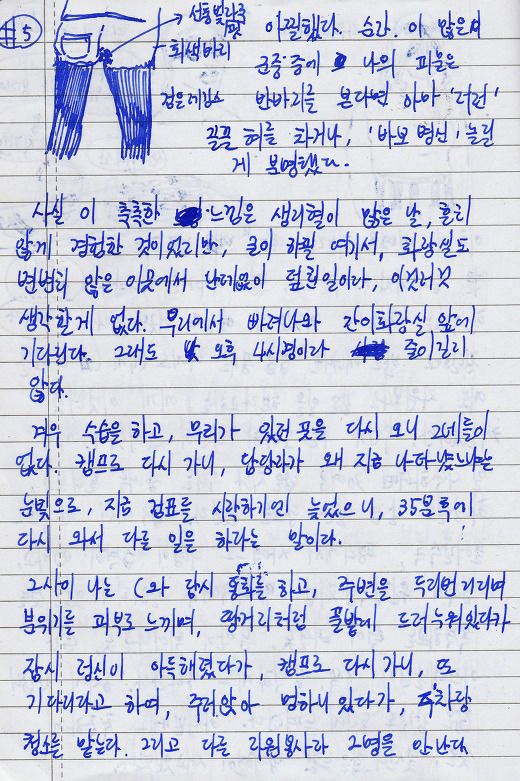 #5
선홍빛라쿠
핏
회색바지
검은레깅스
아찔했다. 순간. 이 많은
군중 중에 나의 피묻은
반바지를 본다면 아마 '더런'
끌끌 혀를 차거나, '바보 병신' 놀릴
게 분명했다.
사실 이 축축한 느낌은 생리혈이 많은 날, 흔히
않게 경험한 것이었지만, 굳이 하필 여기서, 화장실도
변변치 않은 이곳에서 난데없이 덮친일이라, 이것저것
생각할게 없다. 무리에서 빠져나와 간이화장실 앞에
기다린다. 그래도 오후 4시경이라 줄이길지
않다.
겨우 수습을 하고, 무리가 있던 곳을 다시 오니 그네들이
없다. 캠프로 다시 가니, 담당자가 왜 지금 나타났느냐는
눈빛으로, 지금 검표를 시작하기엔 늦었으니, 35분후에
다시 와서 다른 일을 하라는 말이다.
그사이 나는 C와 잠시 통화를 하고, 주변을 두리번거리며
분위기를 피부로 느끼며, 땅거지처럼 풀밭에 드러누워있다가
잠시 정신이 아득해졌다가, 캠프로 다시가니, 또
기다리라고 하여, 주저앉아 멍하니 있다가, 주차장
청소를 맡는다. 그리고 다른 자원봉사자 2명을 만난다.